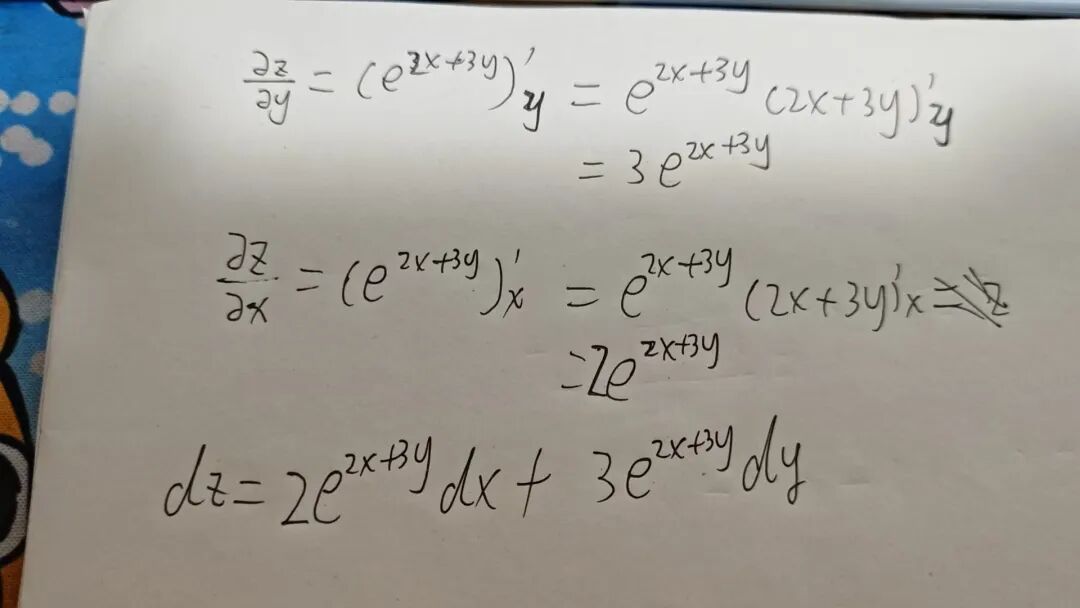 ∂z/∂y = (e^{2x+3y})'_y = e^{2x+3y} (2x+3y)'_y
= 3e^{2x+3y}
∂z/∂x = (e^{2x+3y})'_x = e^{2x+3y} (2x+3y)'_x
= 2e^{2x+3y}
dz = 2e^{2x+3y} dx + 3e^{2x+3y} dy